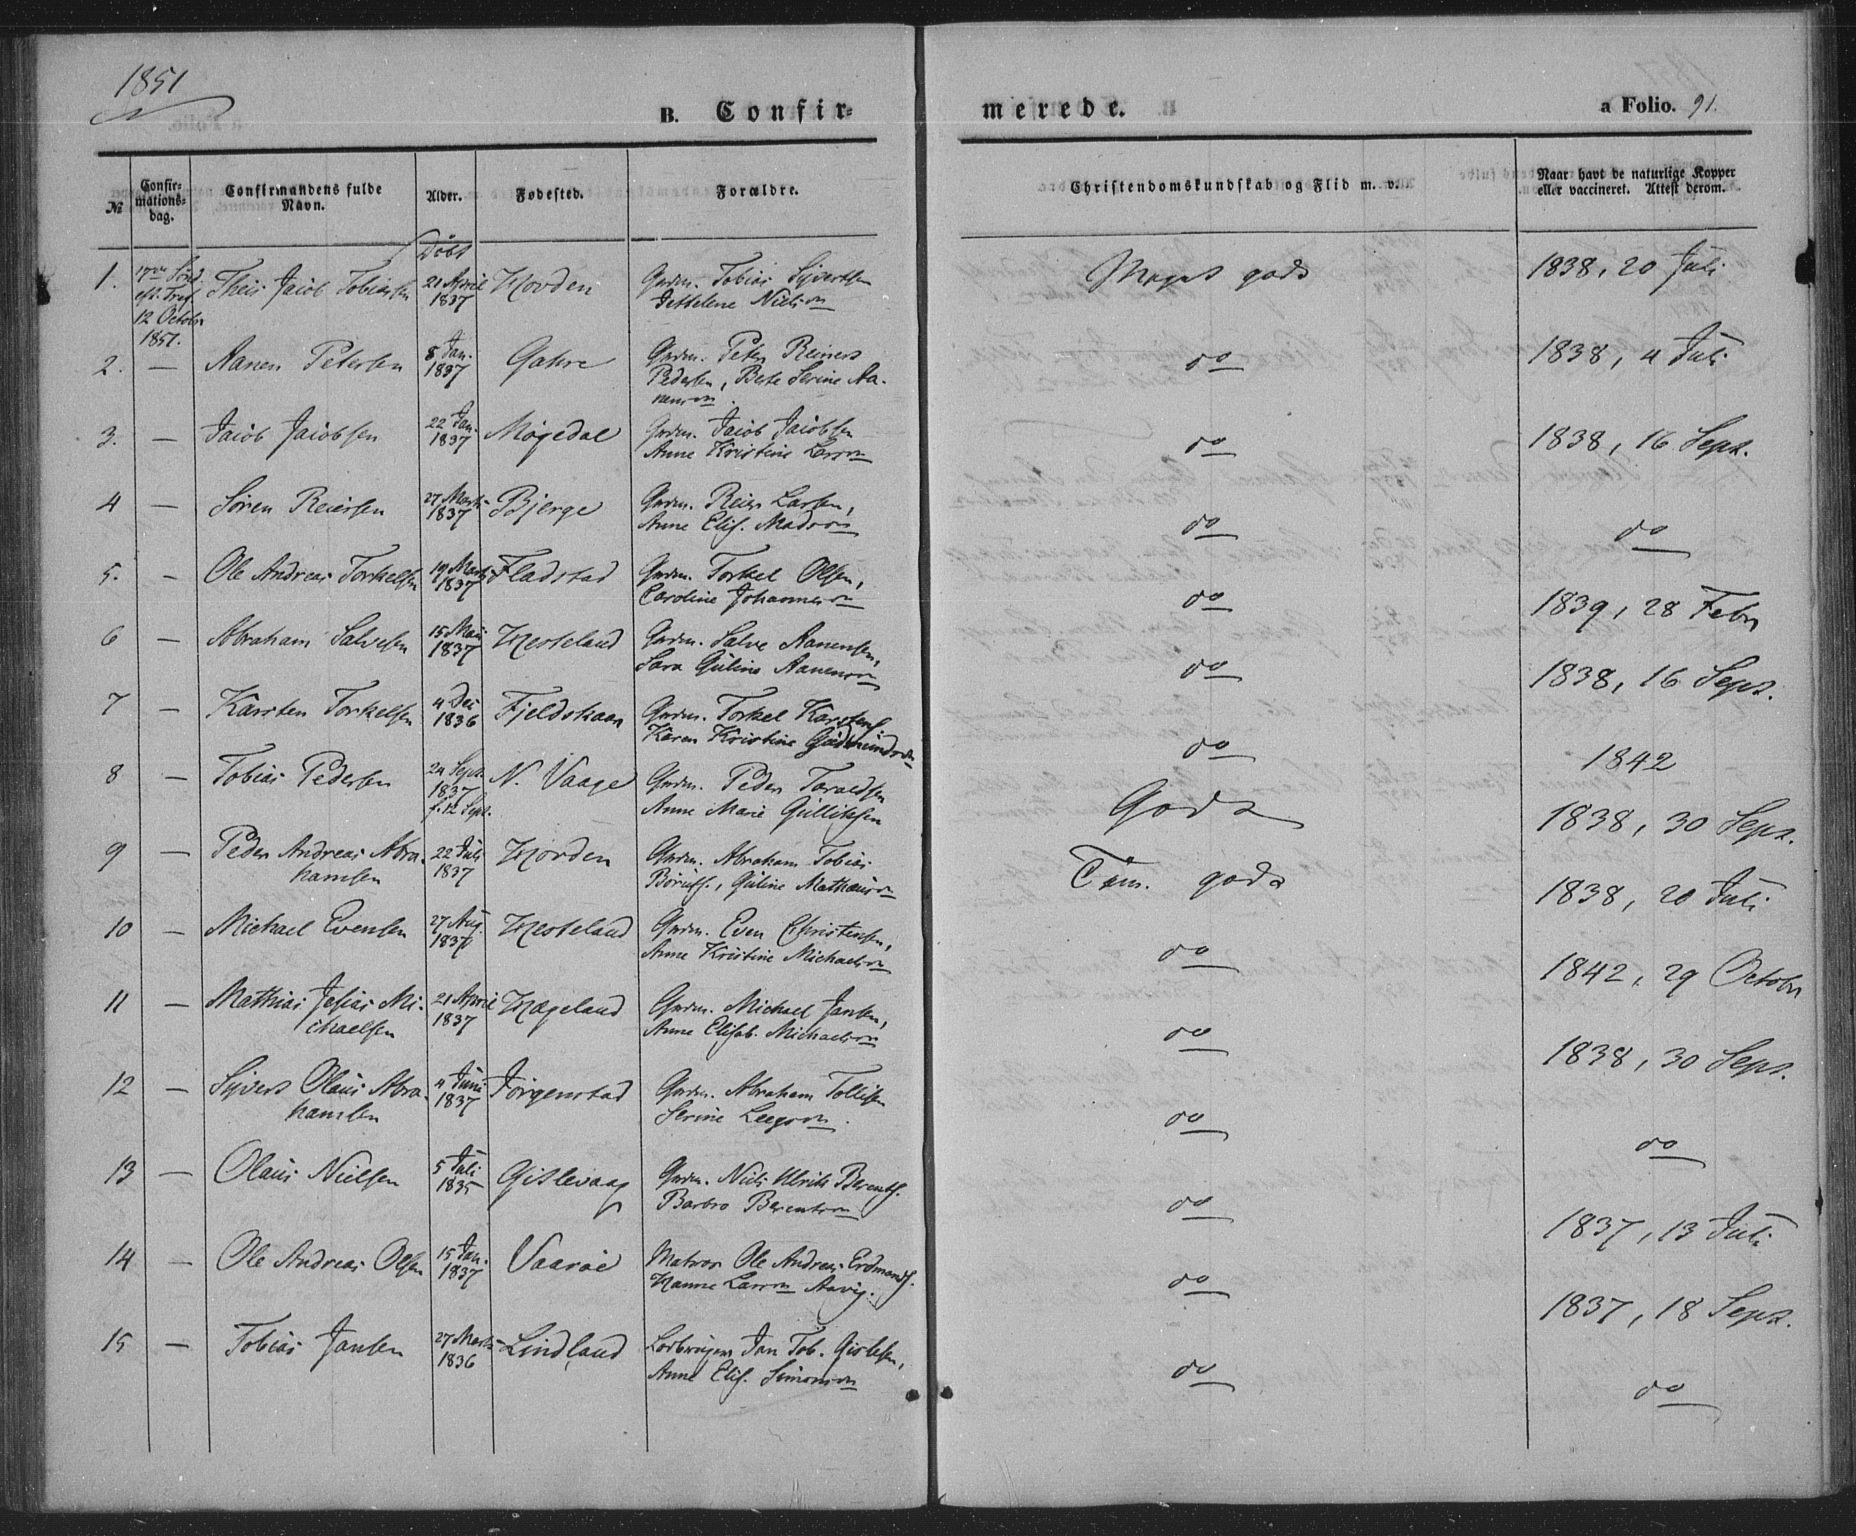 1851
B. Confir-
merede.
a Folio. 91.
№
Confir-
mations-
dag.
Confirmandens fulde
Navn.
Alder.
Fødested.
Forældre.
Christendomskundskab og Flid m. v.
Naar havt de naturlige Kopper
eller vaccineret. Attest derom.
Døbt
1. 17de Sønd. eft. Tref. 12 Octobr 1851. Theis Jacob Tobiassen 21 April 1837 Hovden Gaardm. Tobias Syvertsen
Jettelene Nielsdn
Meget godt 1838, 20 Juli
2. — Aanen Petersen 8 Jan. 1837 Gahre Gaardm. Peter Reinert
Pedersen, Berte Serine Aa-
nensdn.
do 1838, 4 Juli
3. — Jacob Jacobsen 22 Jan. 1837 Møgedal Gaardm. Jacob Jacobsen
Anne Kristine Larsdn
do 1838, 16 Sept.
4 — Søren Reiersen 27 Marts 1837 Bjerge Gaardm. Reier Larsen,
Anne Elis. Madsdn
do do
5. — Ole Andreas Torkelsen 19 Marts 1837 Fladstad Gaardm. Torkel Olsen,
Caroline Johannesdn
do 1839, 28 Febr
6 — Abraham Salvesen 15 Mai 1837 Hesteland Gaardm. Salve Aanensen,
Sara Guline Aanensdn
do 1838, 16 Sept.
7 — Karsten Torkelsen 4 Dec 1836 Fjeldskaar Gaardm. Torkel Karstens.
Karen Kristine Gudmundsdn
do 1842
8 — Tobias Pedersen 24 Sept. 1837 f. 12 Sept. N. Vaage Gaardm. Peder Taraldsen
Anne Marie Gullitsen
Godt 1838, 30 Sept.
9 — Peder Andreas Abra-
hamsen 22 Juli 1837 Hovden Gaardm. Abraham Tobias
Børufs., Guline Mathæusdn
Tem. godt 1838, 20 Juli
10 — Michael Evensen 27 Aug. 1837 Hesteland Gaardm. Even Christensen,
Anne Kristine Michaelsdn
do 1842, 29 Octobr
11 — Mathias Jesias Mi-
chaelsen 21 April 1837 Hageland Gaardm. Michael Jansen,
Anne Elisab. Michaelsdn
do 1838, 30 Sept.
12 — Syvert Olaus Abra-
hamsen 4 Juni 1837 Jørgenstad Gaardm. Abraham Tollisen
Serine Leegsdn.
do do
13 — Olaus Nielsen 5 Juli 1835 Gislevaag Gaardm. Niels Ulrik Berents.
Barbro Berentsdn
do 1837, 13 Juli
14 — Ole Andreas Olsen 15 Jan. 1837 Vaarøe Matros Ole Andreas Erdmands.
Hanne Larsdn Aavig.
do 1837, 18 Sept.
15 — Tobias Jansen 27 Marts 1836 Lindland Lodbruger Jan Tob. Gislesen,
Anne Elis. Simonsdn
do do